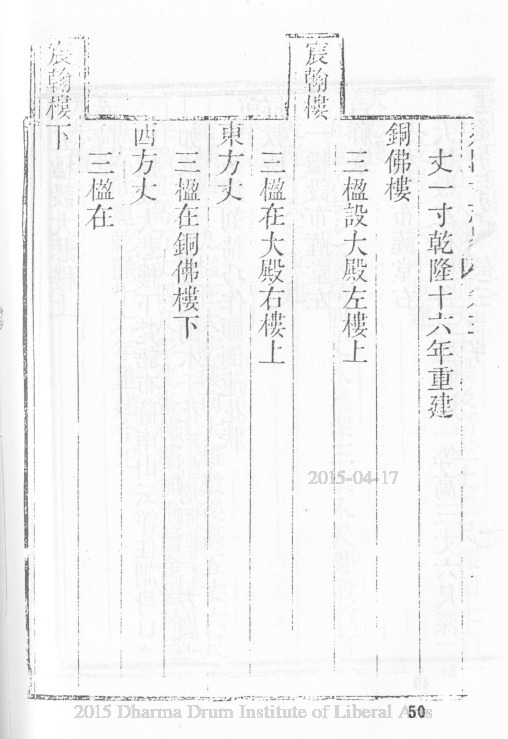 丈一寸乾隆十六年重建
銅佛樓
三楹設大殿左樓上
宸翰樓
三楹在大殿右樓上
東方丈
三楹在銅佛樓下
西方丈
三楹在
宸翰樓下
2015-04-17
2015 Dharma Drum Institute of Liberal Arts
50